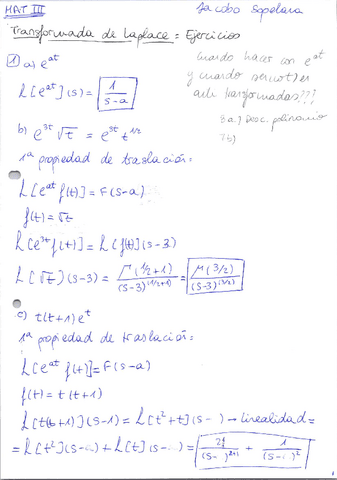 MAT III
Jacobo Sopelana
Transformada de Laplace: Ejercicios
1 a) e^at
L[e^at](s) = 1/(s-a)
Cuando hacer con e^at
y cuando
transformadas???
8a) Desc. polinomio
7b)
b) e^3t √t = e^3t t^1/2
1ª propiedad de traslación:
L[e^at f(t)] = F(s-a)
f(t) = √t
L[e^3t f(t)] = L[f(t)](s-3)
L[√t](s-3) = Γ(1/2+1)/(s-3)^(1/2+1) = Γ(3/2)/(s-3)^(3/2)
c) t(t+1)e^t
1ª propiedad de traslación:
L[e^at f(t)] = F(s-a)
f(t) = t(t+1)
L[t(t+1)](s-1) = L[t²+t](s- ) → linealidad =
= L[t²](s- ) + L[t](s- ) = 2!/(s- )^2+1 + 1/(s- )²